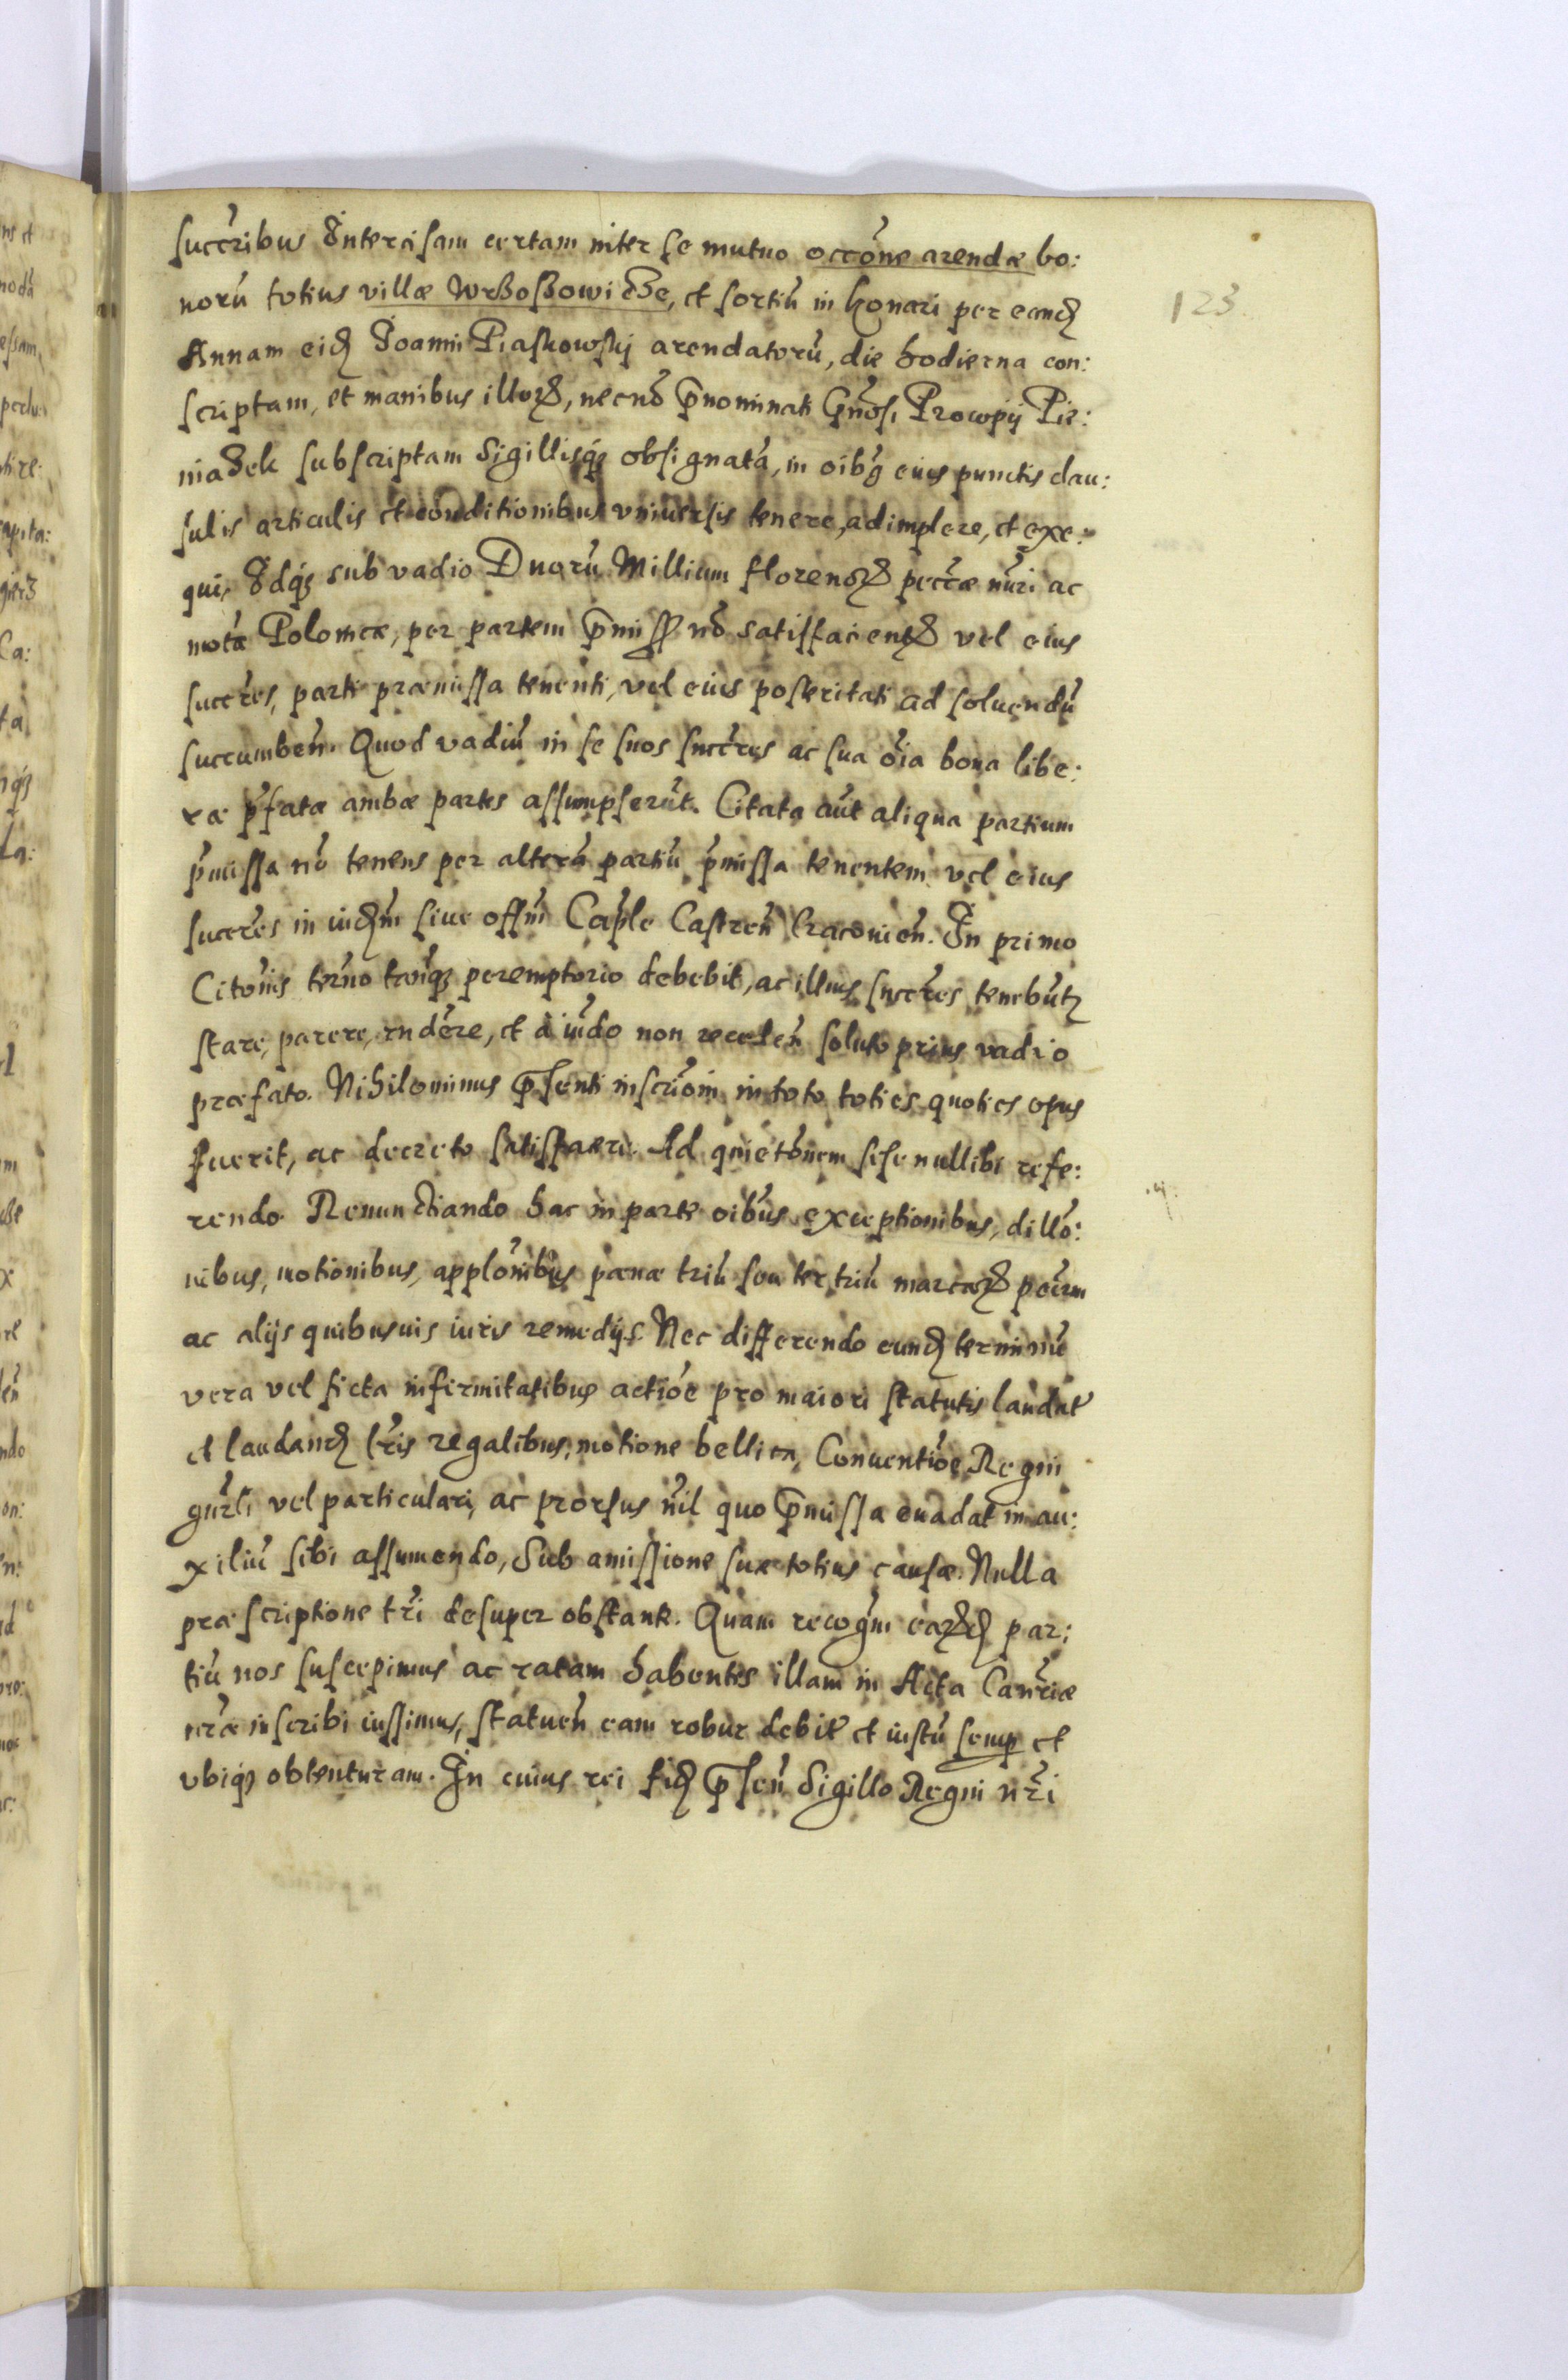 succ̄ribus Intercisam certam inter se mutuo occōne arendæ bo:
norū totius villæ Wrzosowicze, et sortiū in Konari per eandē
123
Annam eidē Joanni Piaskowskij arendatorū, die hodierna con:
scriptam, et manibus illorū, necnō p̄nominati Gn̄osi Procopij Pie:
niazek subscriptam Sigillisq́ obsignatā, in oībus eius punctis clau:
sulis articulis et conditionibus vniuersis tenere, adimplere, et exe:
qui, Idq́ sub vadio Duorū Millium florenorū pecc̄æ nūri ac
notæ Polonicæ, per partem p̄miss nō satisfacientē vel eius
succ̄res, parti præmissa tenenti, vel eius posteritati ad soluendū
succumben̄. Quod vadiū in se suos succ̄res ac sua ōia bona libe:
ræ p̄fatæ ambæ partes assumpserūt. Citata aūt aliqua partium
p̄missa nō tenens per alterā partiū p̄missa tenentem vel eius
succ̄res in iudm̄ siue offm̄ Cap̄le Castren̄ Cracouien̄. In primo
Citōnis term̄no tanq́ peremptorio debebit, ac illius succ̄res tenebūtr
stare, parere, rndēre, et à iūdo non receden̄ soluto prius vadio
præfato. Nihilominus p̄senti inscrōni in toto toties quoties opus
fuerit, ac decreto satisfacere. Ad quietōnem sese nullibi refe:
rendo Renunctiando hac in parte oibūs exceptionibus, dillō:
nibus, motionibus, applōnibus pænæ triū seu ter triū marcarū pecūm
ac alijs quibusuis iuris remedijs. Nec differendo eundē terminū
vera vel ficta infirmitatibus actiōe pro maiori statutis laudat̄
et laudandē lr̄is regalibus, motione bellica, Conuentiōe Regni
gn̄rli vel particulari, ac prorsus n̄il quo p̄missa euadat in au:
xiliū sibi assumendo, Sub amissione suæ totius causæ. Nulla
præscriptione tr̄ri desuper obstante. Quam recogn̄i earūdē par:
tiū nos suscepimus ac ratam habentes illam in Acta Canr̄iæ
nr̄æ inscribi iussimus, statuen̄ eam robur debit̄ et iustū semp̄ et
vbiq́ obtenturam. In cuius rei fidē p̄sen̄ Sigillo Regni nr̄i